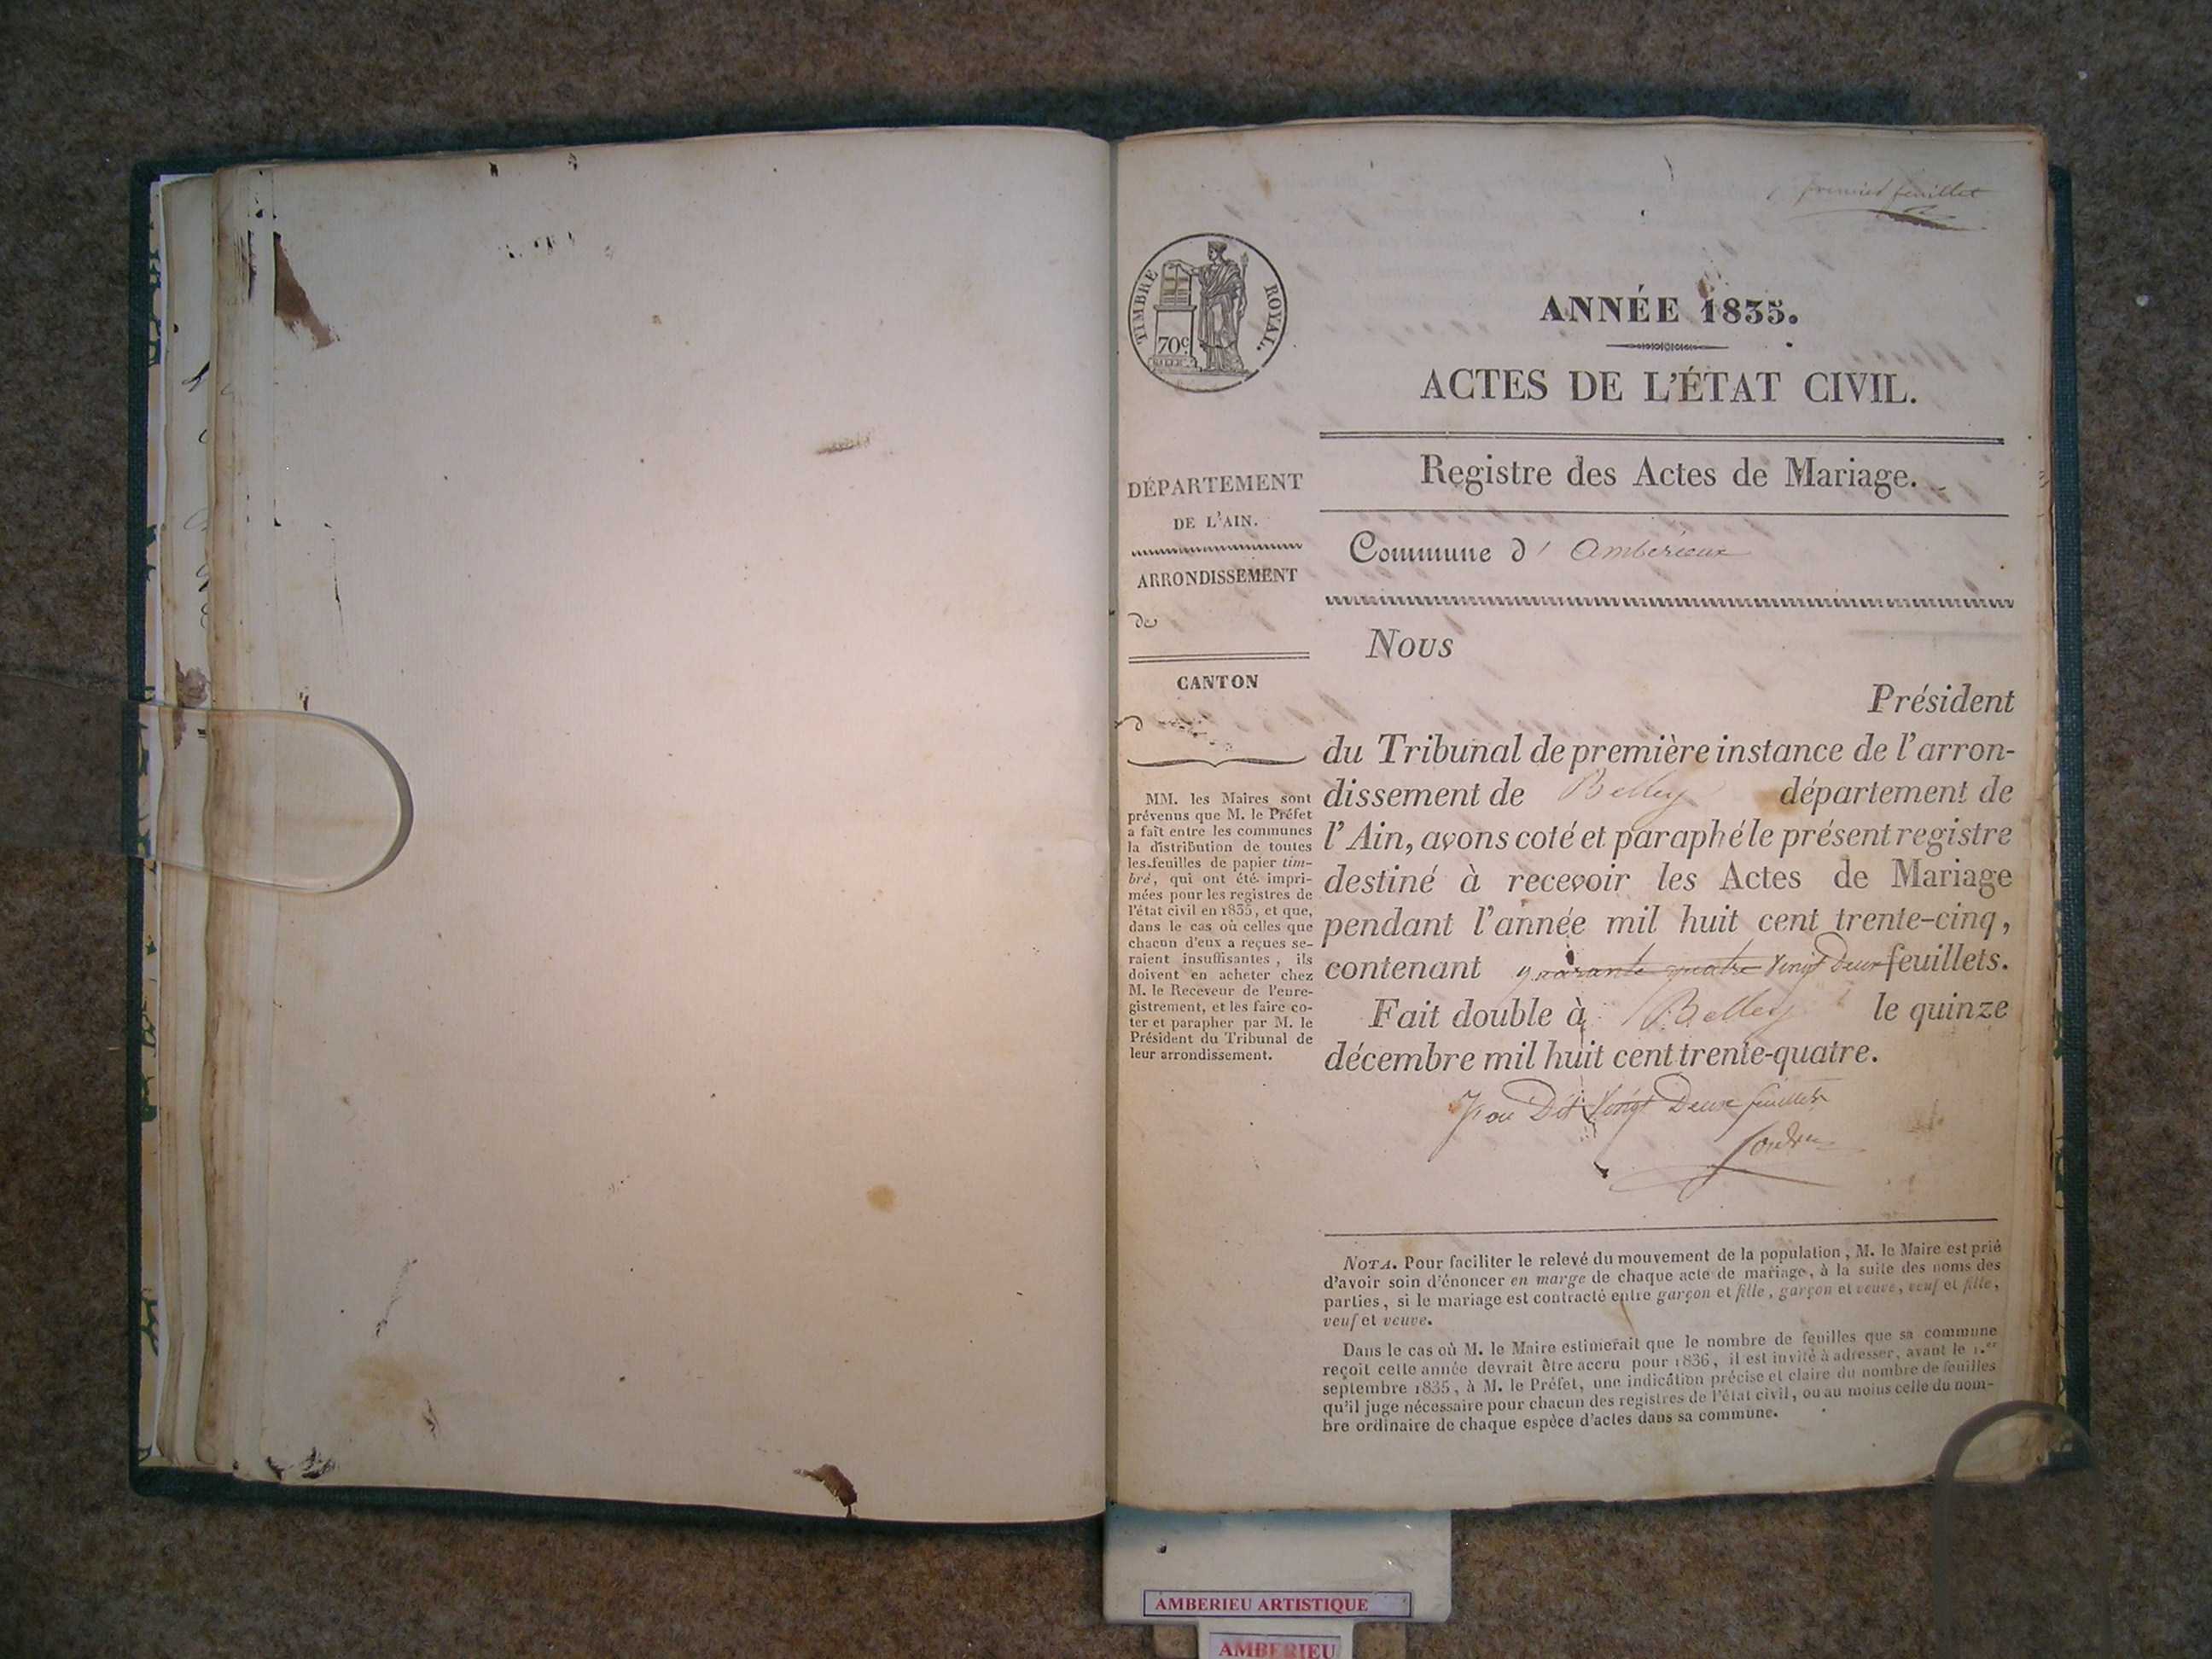 premier feuillet
TIMBRE ROYAL.
70c
ANNÉE 1835.
ACTES DE L'ÉTAT CIVIL.
Registre des Actes de Mariage.
Commune d' Amberieux
DÉPARTEMENT
DE L'AIN.
ARRONDISSEMENT
de
CANTON
d
MM. les Maires sont
prévenus que M. le Préfet
a fait entre les communes
la distribution de toutes
les feuilles de papier tim-
bré, qui ont été impri-
mées pour les registres de
l'état civil en 1835, et que,
dans le cas où celles que
chacun d'eux a reçues se-
raient insuffisantes, ils
doivent en acheter chez
M. le Receveur de l'enre-
gistrement, et les faire co-
ter et parapher par M. le
Président du Tribunal de
leur arrondissement.
Nous
Président
du Tribunal de première instance de l'arron-
dissement de Belley département de
l'Ain, avons coté et paraphé le présent registre
destiné à recevoir les Actes de Mariage
pendant l'année mil huit cent trente-cinq,
contenant quarante quatre Vingt Deux feuillets.
Fait double à Belley le quinze
décembre mil huit cent trente-quatre.
Dit Vingt Deux feuillets
NOTA. Pour faciliter le relevé du mouvement de la population, M. le Maire est prié
d'avoir soin d'énoncer en marge de chaque acte de mariage, à la suite des noms des
parties, si le mariage est contracté entre garçon et fille, garçon et veuve, veuf et fille,
veuf et veuve.
Dans le cas où M. le Maire estimerait que le nombre de feuilles que sa commune
reçoit cette année devrait être accru pour 1836, il est invité à adresser, avant le 1.er
septembre 1835, à M. le Préfet, une indication précise et claire du nombre de feuilles
qu'il juge nécessaire pour chacun des registres de l'état civil, ou au moins celle du nom-
bre ordinaire de chaque espèce d'actes dans sa commune.
AMBERIEU ARTISTIQUE
AMBERIEU